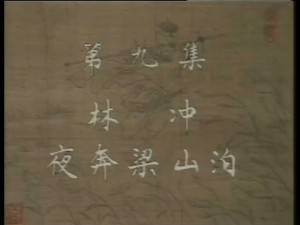 第九集
林冲
夜奔梁山泊